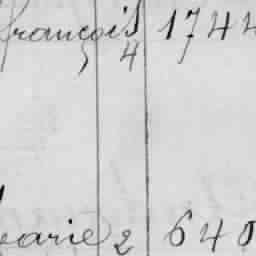 françois 1744
4
Marie 2 640